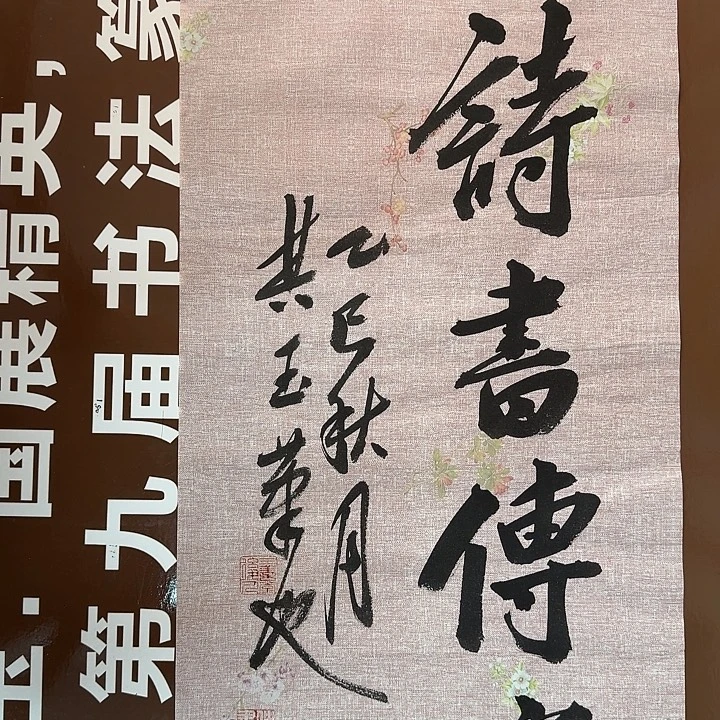 詩書傳
乙巳秋月
其玉筆也
第九届书法篆
国展精英,